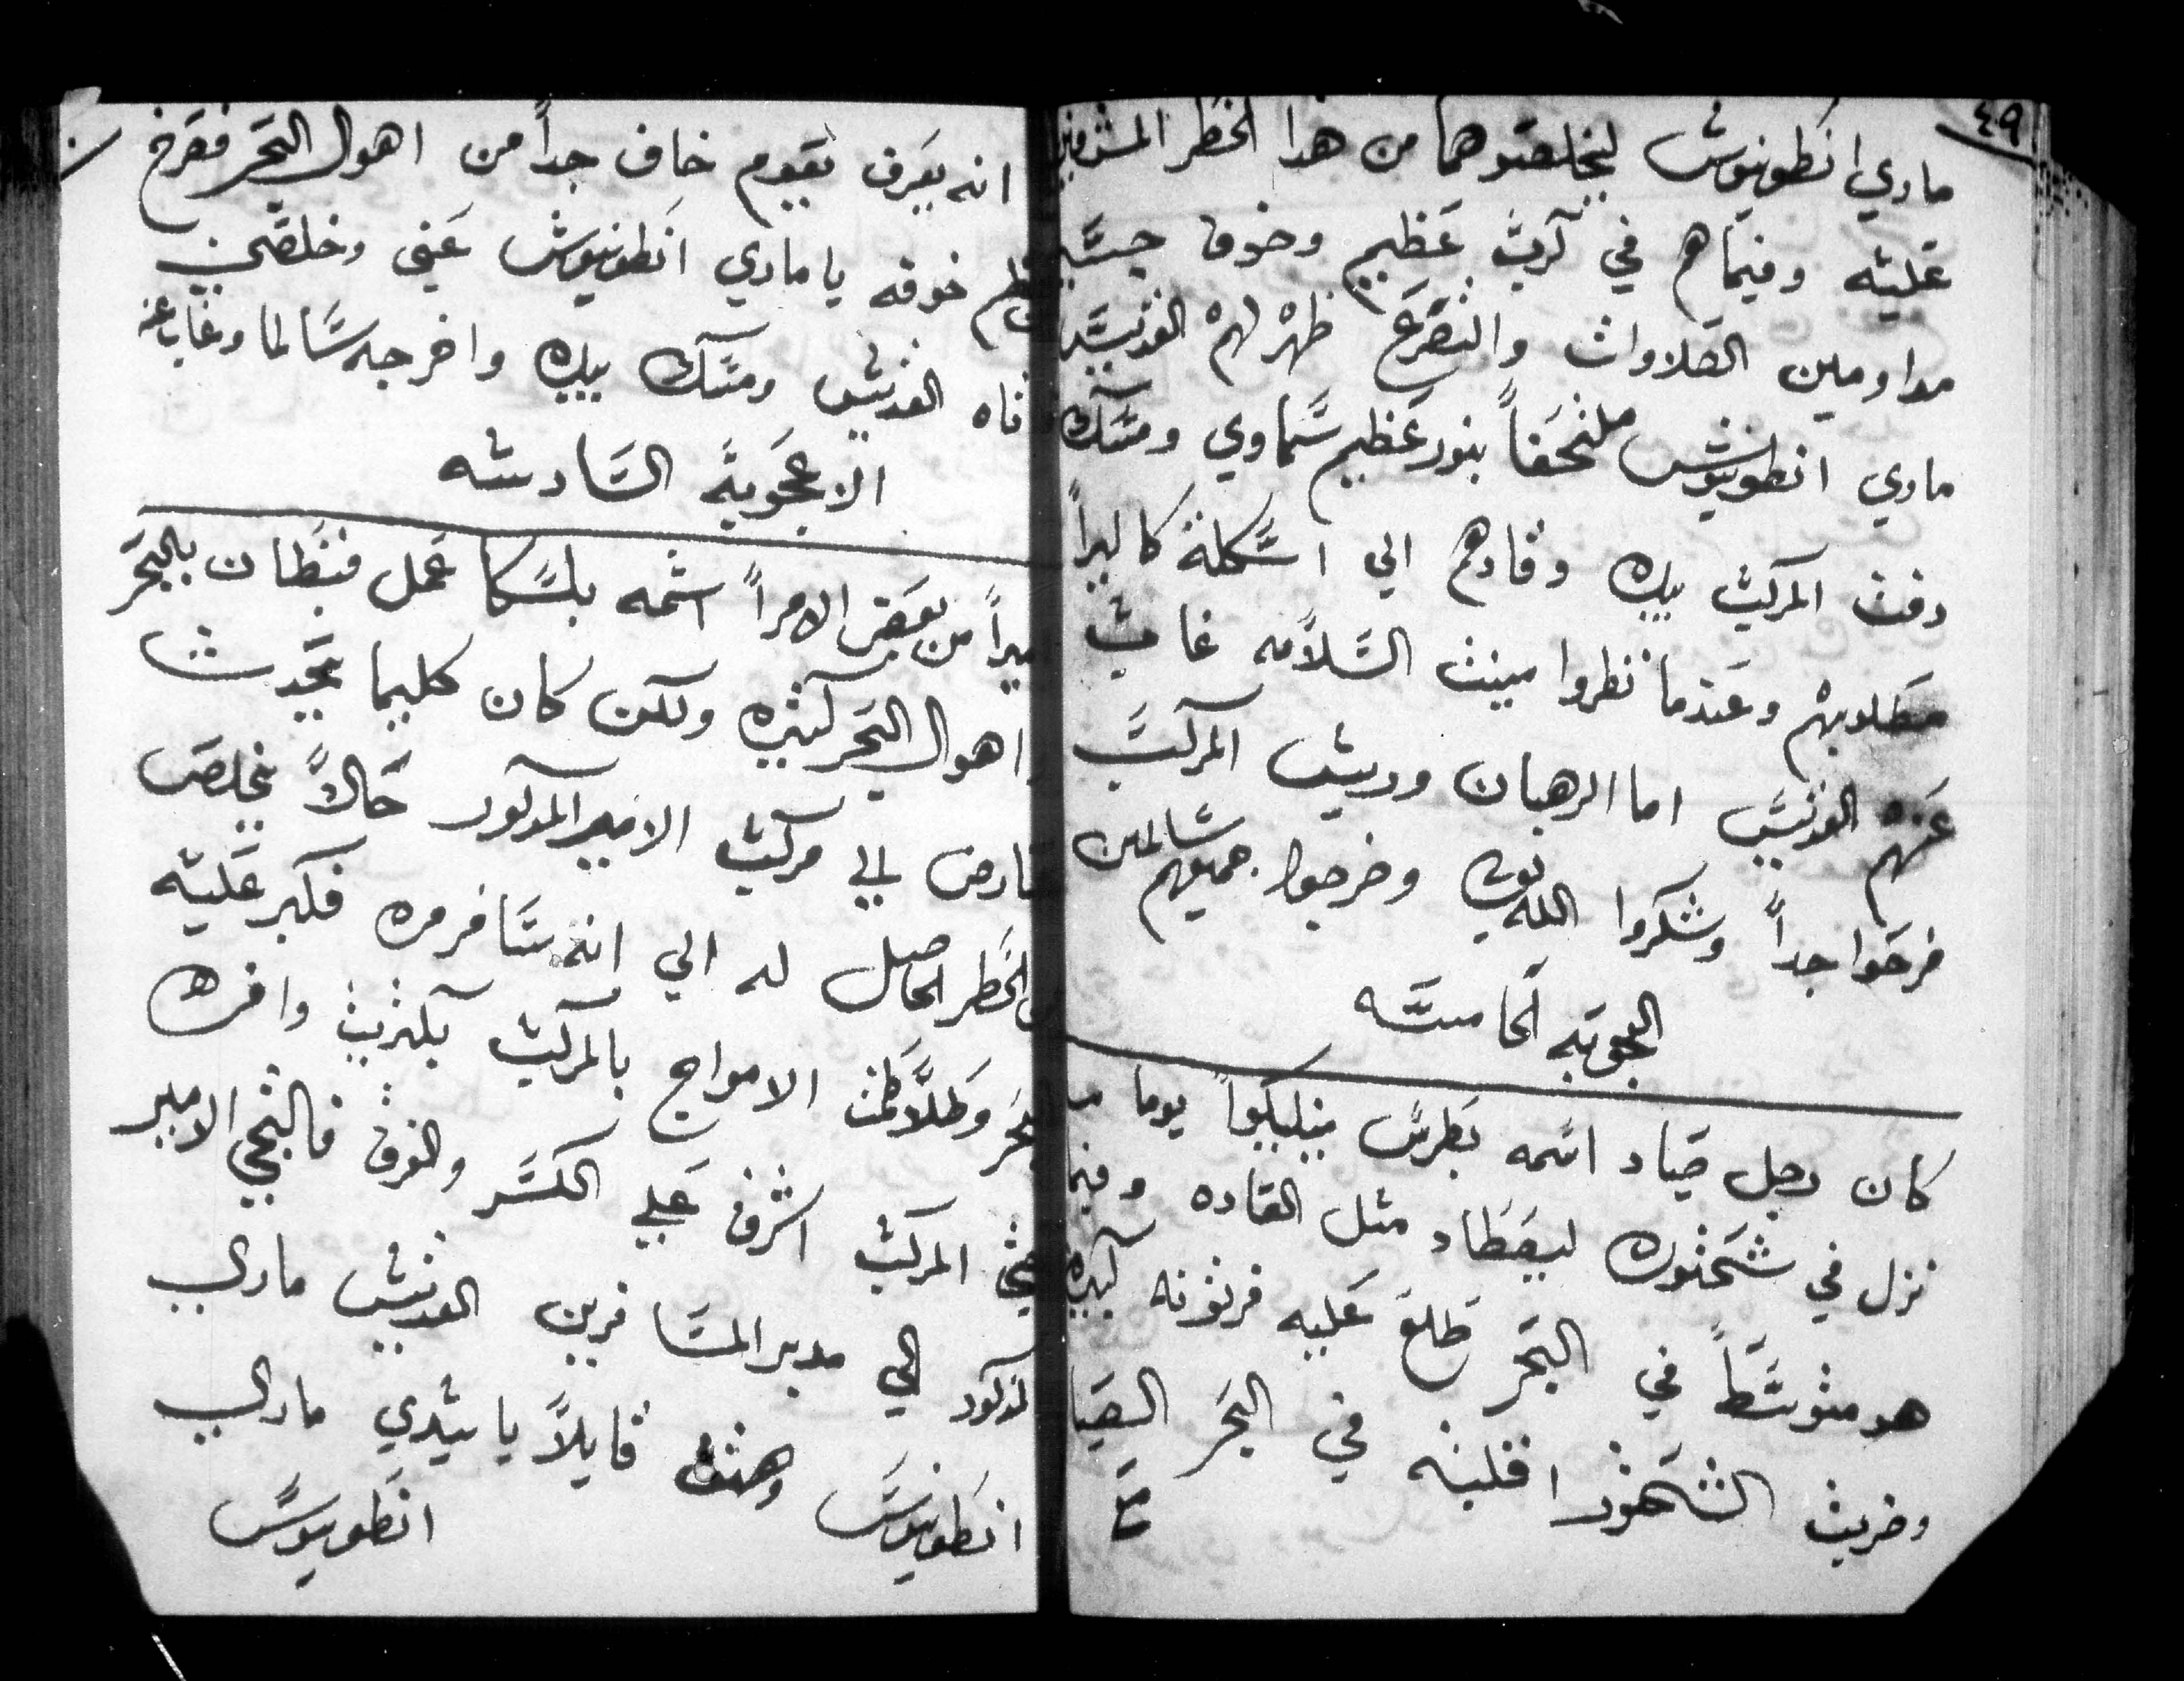 ٤٩
ماري انطونيوش ليخلصوهما من هدا الخطر المشرفين
عليه وفيما هم في كرب عظيم وخوف جسيم
مداومين الصلاوات والتضرع ظهر لهم القديس
ماري انطونيوش ملتحفاً بنور عظيم سماوي ومسك
دفت المركب بيده وقادهم الي اسكلة كاليراً
مطلوبهم وعندما نظروا مينت السلامه غاب
عنهم القديس اما الرهبان وريش المركب
فرحوا جداً وشكروا الله وخرجوا جميعهم سالمين
العجوبه الخامسه
كان رجل صياد اسمه بطرس يوما
نزل في شختوره ليصطاد مثل العاده وفيما
هو متوسطاً في البحر طلع عليه فرتونه كبيره
وضربت الشختور اقلبته في البحر الصيا
انه يعرف يقوم خاف جداً من اهوال البحر فصرخ
خوفه يا ماري انطونيوش عيني وخلصني
فاه القديش ومسك بيده واخرجه سالما وغاب عنه
الاعجوبة السادسه
ميراً من بعض الامراً اسمه بلسكا عمل قبطان بالبحر
اهوال البحر كثيره ولكن كان كليما يحدث
عارض الي مركب الامير المدكور حالاً يخلص
الخطر الحاصل له الي انه سافر مره فكبر عليه
البحر وطلاطمت الامواج بالمركب
المركب اشرف علي الكسر والغرق فالتجي الامير
المدكور الي مدبر المسافرين القديس ماري
انطونيوس وهتف قايلاً يا سيدي ماري
انطونيوس